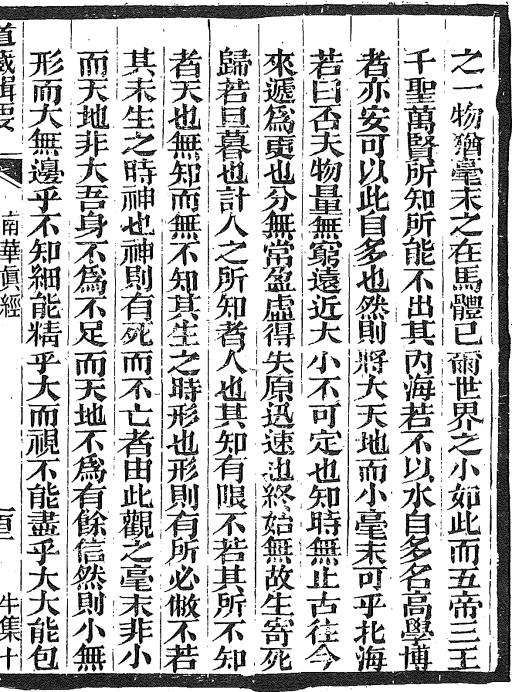 之一物猶毫末之在馬體已爾世界之小如此而五帝三王
千聖萬賢所知所能不出其內海若不以水自多名高學博
者亦安可以此自多也然則將大天地而小毫末可乎北海
若曰否夫物量無窮遠近大小不可定也知時無止古往今
來遞爲更也分無常盈虛得失原迅速也終始無故生寄死
歸若旦暮也計人之所知者人也其知有限不若其所不知
者天也無知而無不知其生之時形也形則有所必儆不若
其未生之時神也神則有死而不亡者由此觀之毫末非小
而天地非大吾身不爲不足而天地不爲有餘信然則小無
形而大無邊乎不知細能精乎大而視不能盡乎大大能包
道藏輯要
南華眞經
牛集十